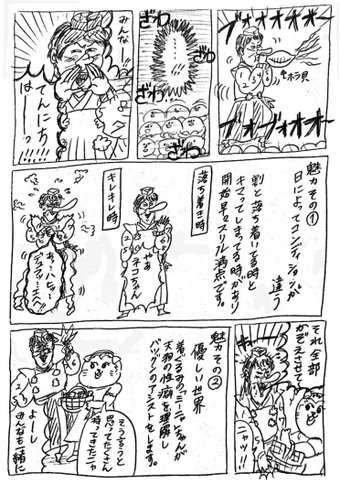 ブォオオオオ〜
ブォブォオオ〜
←ホラ貝
ざわ
ざわ
ざわ
ざわ
みんなー!!
てんにち
はーっ!!
魅力その①
日によってコンディションが
違う
割と落ち着いてる時と
キマってしまってる時があり
開始早々スリル満点です。
落ち着き時
やあ
ネコちゃん
キレキレ時
あっハヒャ
魅力その②
優しい世界
着ぐるみのミーニャちゃんが
天狗の性癖を理解し
バツグンのアシストをします。
それ全部
かぞえさせて!
ニャッ!!
そう言うと
思ってたくさん
持ってきたニャ
よーし
みんなも一緒に